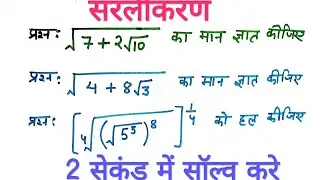 सरलीकरण
प्रश्न: √(7+2√10) का मान ज्ञात कीजिए
प्रश्न: √(4+8√3) का मान ज्ञात कीजिए
प्रश्न: [∜((√5³)⁸)]^(1/4) को हल कीजिए
2 सेकंड में सॉल्व करे